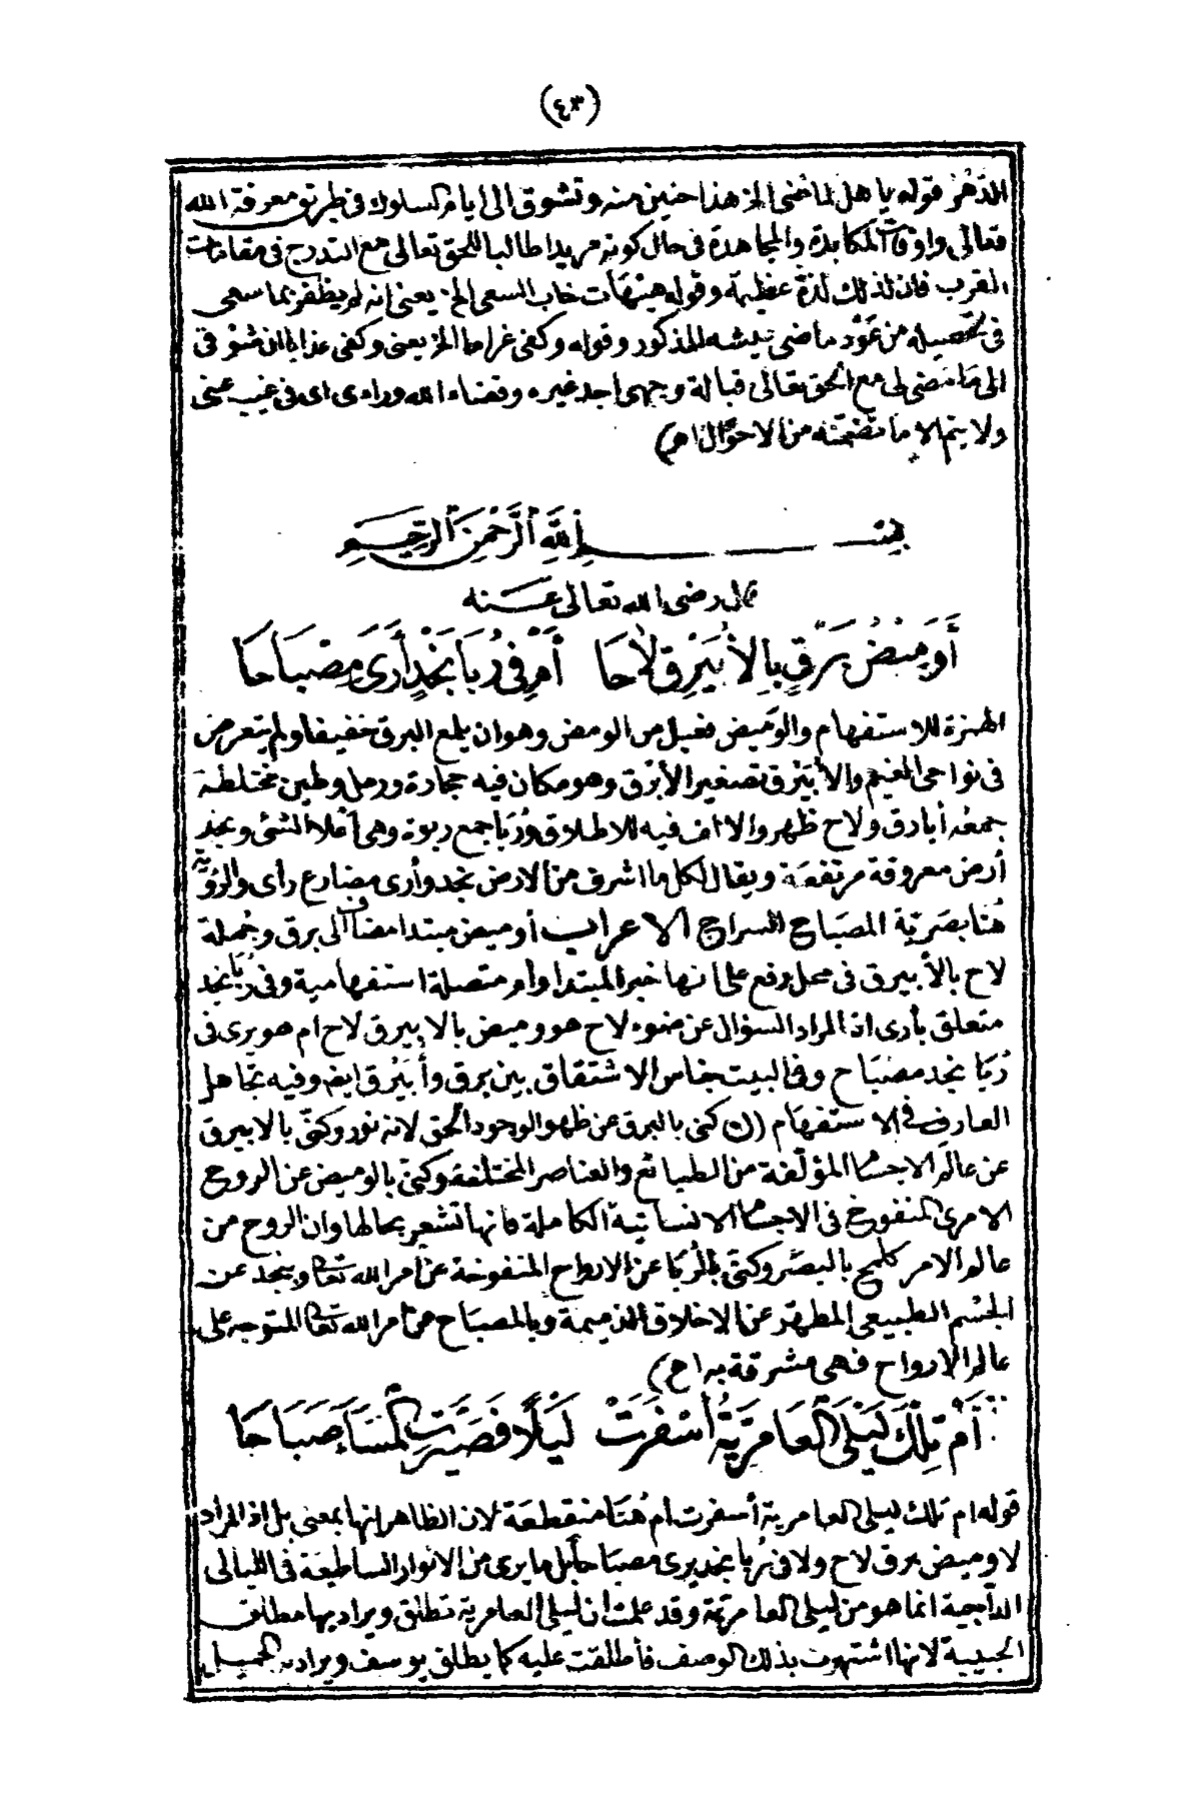 (٤٣)
الدهر قوله يا هل لماضى الخ هذا حنين منه وتشوق الى ايام السلوك فى طريق معرفة الله
تعالى واوقات المكابدة والمجاهدة فى حال كونه مريدا طالبا للحق تعالى مع التدرج فى مقامات
القرب فان لذلك لذة عظيمة وقوله هيهات خاب السعى الخ يعنى انه لم يظفر بما سعى
فى تحصيله من عود ماضى عيشه المذكور وقوله وكفى غراما الخ يعنى وكفى عذابا ان شوقى
الى ما مضى لى مع الحق تعالى قبالة وجهى اجد غيره وقضاء الله وراءى اى فى غيب عينى
ولا يتم الا ما تضمنه من الاحوال اهـ)
بِسْــــــمِ اللَّهِ الرَّحْمٰنِ الرَّحِيْمِ
قال رضى الله تعالى عنه
أَوَمِيْضُ بَرْقٍ بِالْأُبَيْرِقِ لَاحَا أَمْ فِى رُبَا نَجْدٍ أَرَى مِصْبَاحَا
الهمزة للاستفهام والوميض فعيل من الومض وهو ان يلمع البرق خفيفا ولم يتعرض
فى نواحى الغيم والأبيرق تصغير الأبرق وهو مكان فيه حجارة ورمل وطين مختلطة
جمعه أبارق ولاح ظهر والالف فيه للاطلاق ورُبا جمع ربوة وهى أعلا الشئ ونجد
أرض معروفة مرتفعة ويقال لكل ما اشرف من الارض نجد وأرى مضارع رأى والرؤية
هنا بصرية المصباح السراج الاعراب أوميض مبتدا مضاف الى برق وجملة
لاح بالأبيرق فى محل رفع على انها خبر المبتدا وام متصلة استفهامية وفى رُبَا نجد
متعلق بأرى اذ المراد السؤال عن ضوء لاح هو وميض بالابيرق لاح ام هو يرى فى
رُبَا نجد مصباح وفى البيت جناس الاشتقاق بين برق وأُبَيْرق ايضا وفيه تجاهل
العارف فى الاستفهام (ن) كنى بالبرق عن ظهور الوجود الحق لانه نور وكنى بالابيرق
عن عالم الاجسام المؤلفة من الطبائع والعناصر المختلفة وكنى بالوميض عن الروح
الامرى المنفوخ فى الاجسام الانسانية الكاملة فانها تشعر بحالها وان الروح من
عالم الامر كلمح بالبصر وكنى بالرُبَا عن الارواح المنفوخة عن امر الله تعالى وبنجد عن
الجسم الطبيعى المطهر عن الاخلاق الذميمة وبالمصباح عن امر الله تعالى المتوجه على
عالم الارواح فهى مشرقة به اهـ)
أَمْ تِلْكَ لَيْلَى الْعَامِرِيَّةُ أَسْفَرَتْ لَيْلًا فَصَيَّرَتِ الْمَسَاءَ صَبَاحَا
قوله ام تلك ليلى العامرية أسفرت ام هنا منقطعة لان الظاهر انها بمعنى بل اذ المراد
لا وميض برق لاح ولا فى رُبا نجد يرى مصباحا بل ما يرى من الانوار الساطعة فى الليالى
الداجية انما هو من ليلى العامرية وقد علمت ان ليلى العامرية تطلق ويراد بها مطلق
الحبيبة لانها اشتهرت بذلك الوصف فأطلقت عليه كما يطلق يوسف ويراد به الجميل